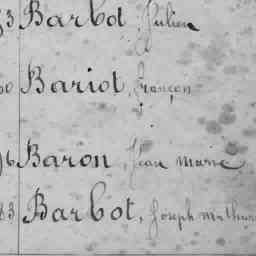 3 Barbot, Julien
Bariot, François
6 Baron, Jean marie
83 Barbot, Joseph mathurin